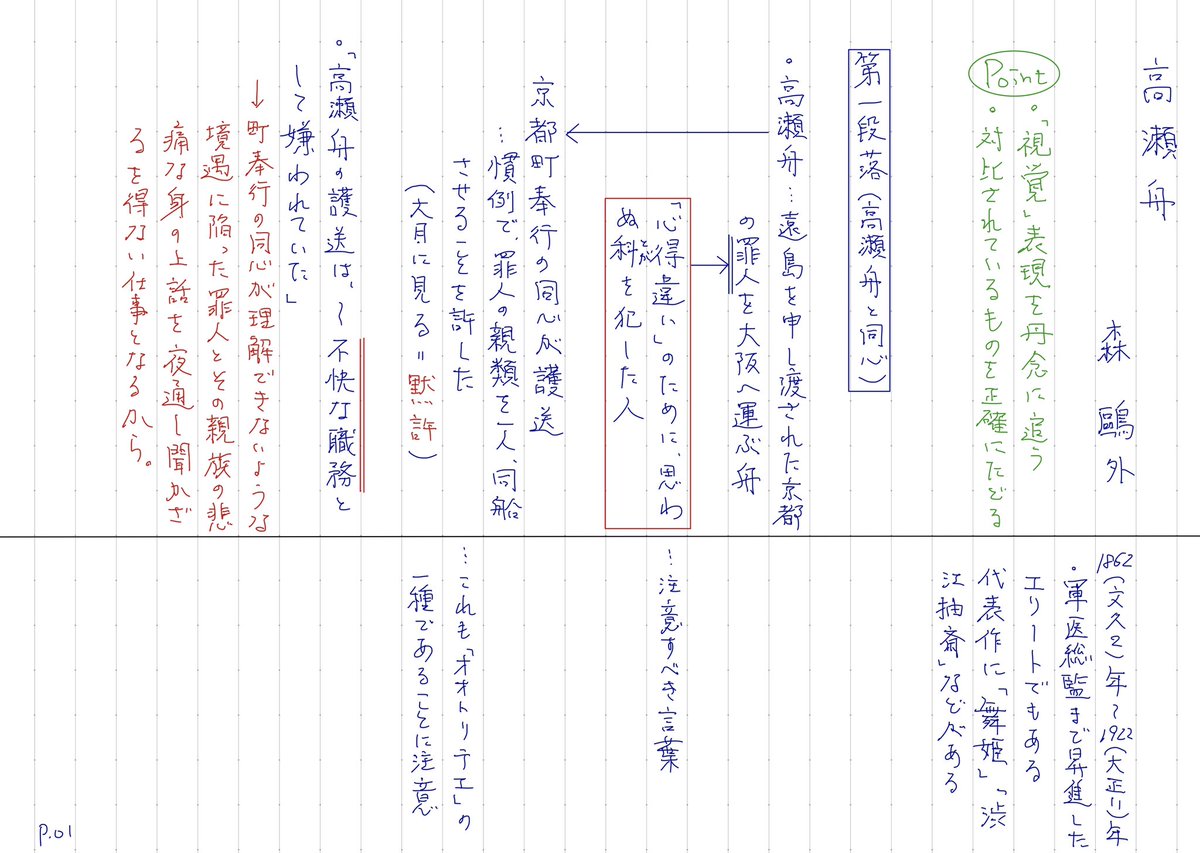 高瀬舟
森鷗外
Point
・「視覚」表現を丹念に追う
・対比されているものを正確にたどる
第一段落(高瀬舟と同心)
・高瀬舟…遠島を申し渡された京都
の罪人を大阪へ運ぶ舟
「心得違い」のために、思わ
ぬ科を犯した人
京都町奉行の同心が護送
…慣例で、罪人の親類を一人、同船
させることを許した
(大目に見る=黙許)
・「高瀬舟の護送は、〜不快な職務と
して嫌われていた」
→町奉行の同心が理解できないような
境遇に陥った罪人とその親族の悲
痛な身の上話を夜通し聞かざ
るを得ない仕事となるから。
1862(文久2)年〜1922(大正11)年
・軍医総監まで昇進した
エリートでもある
代表作に「舞姫」「渋
江抽斎」などがある
…注意すべき言葉
…これも「オオトリテエ」の
一種であることに注意
P.01